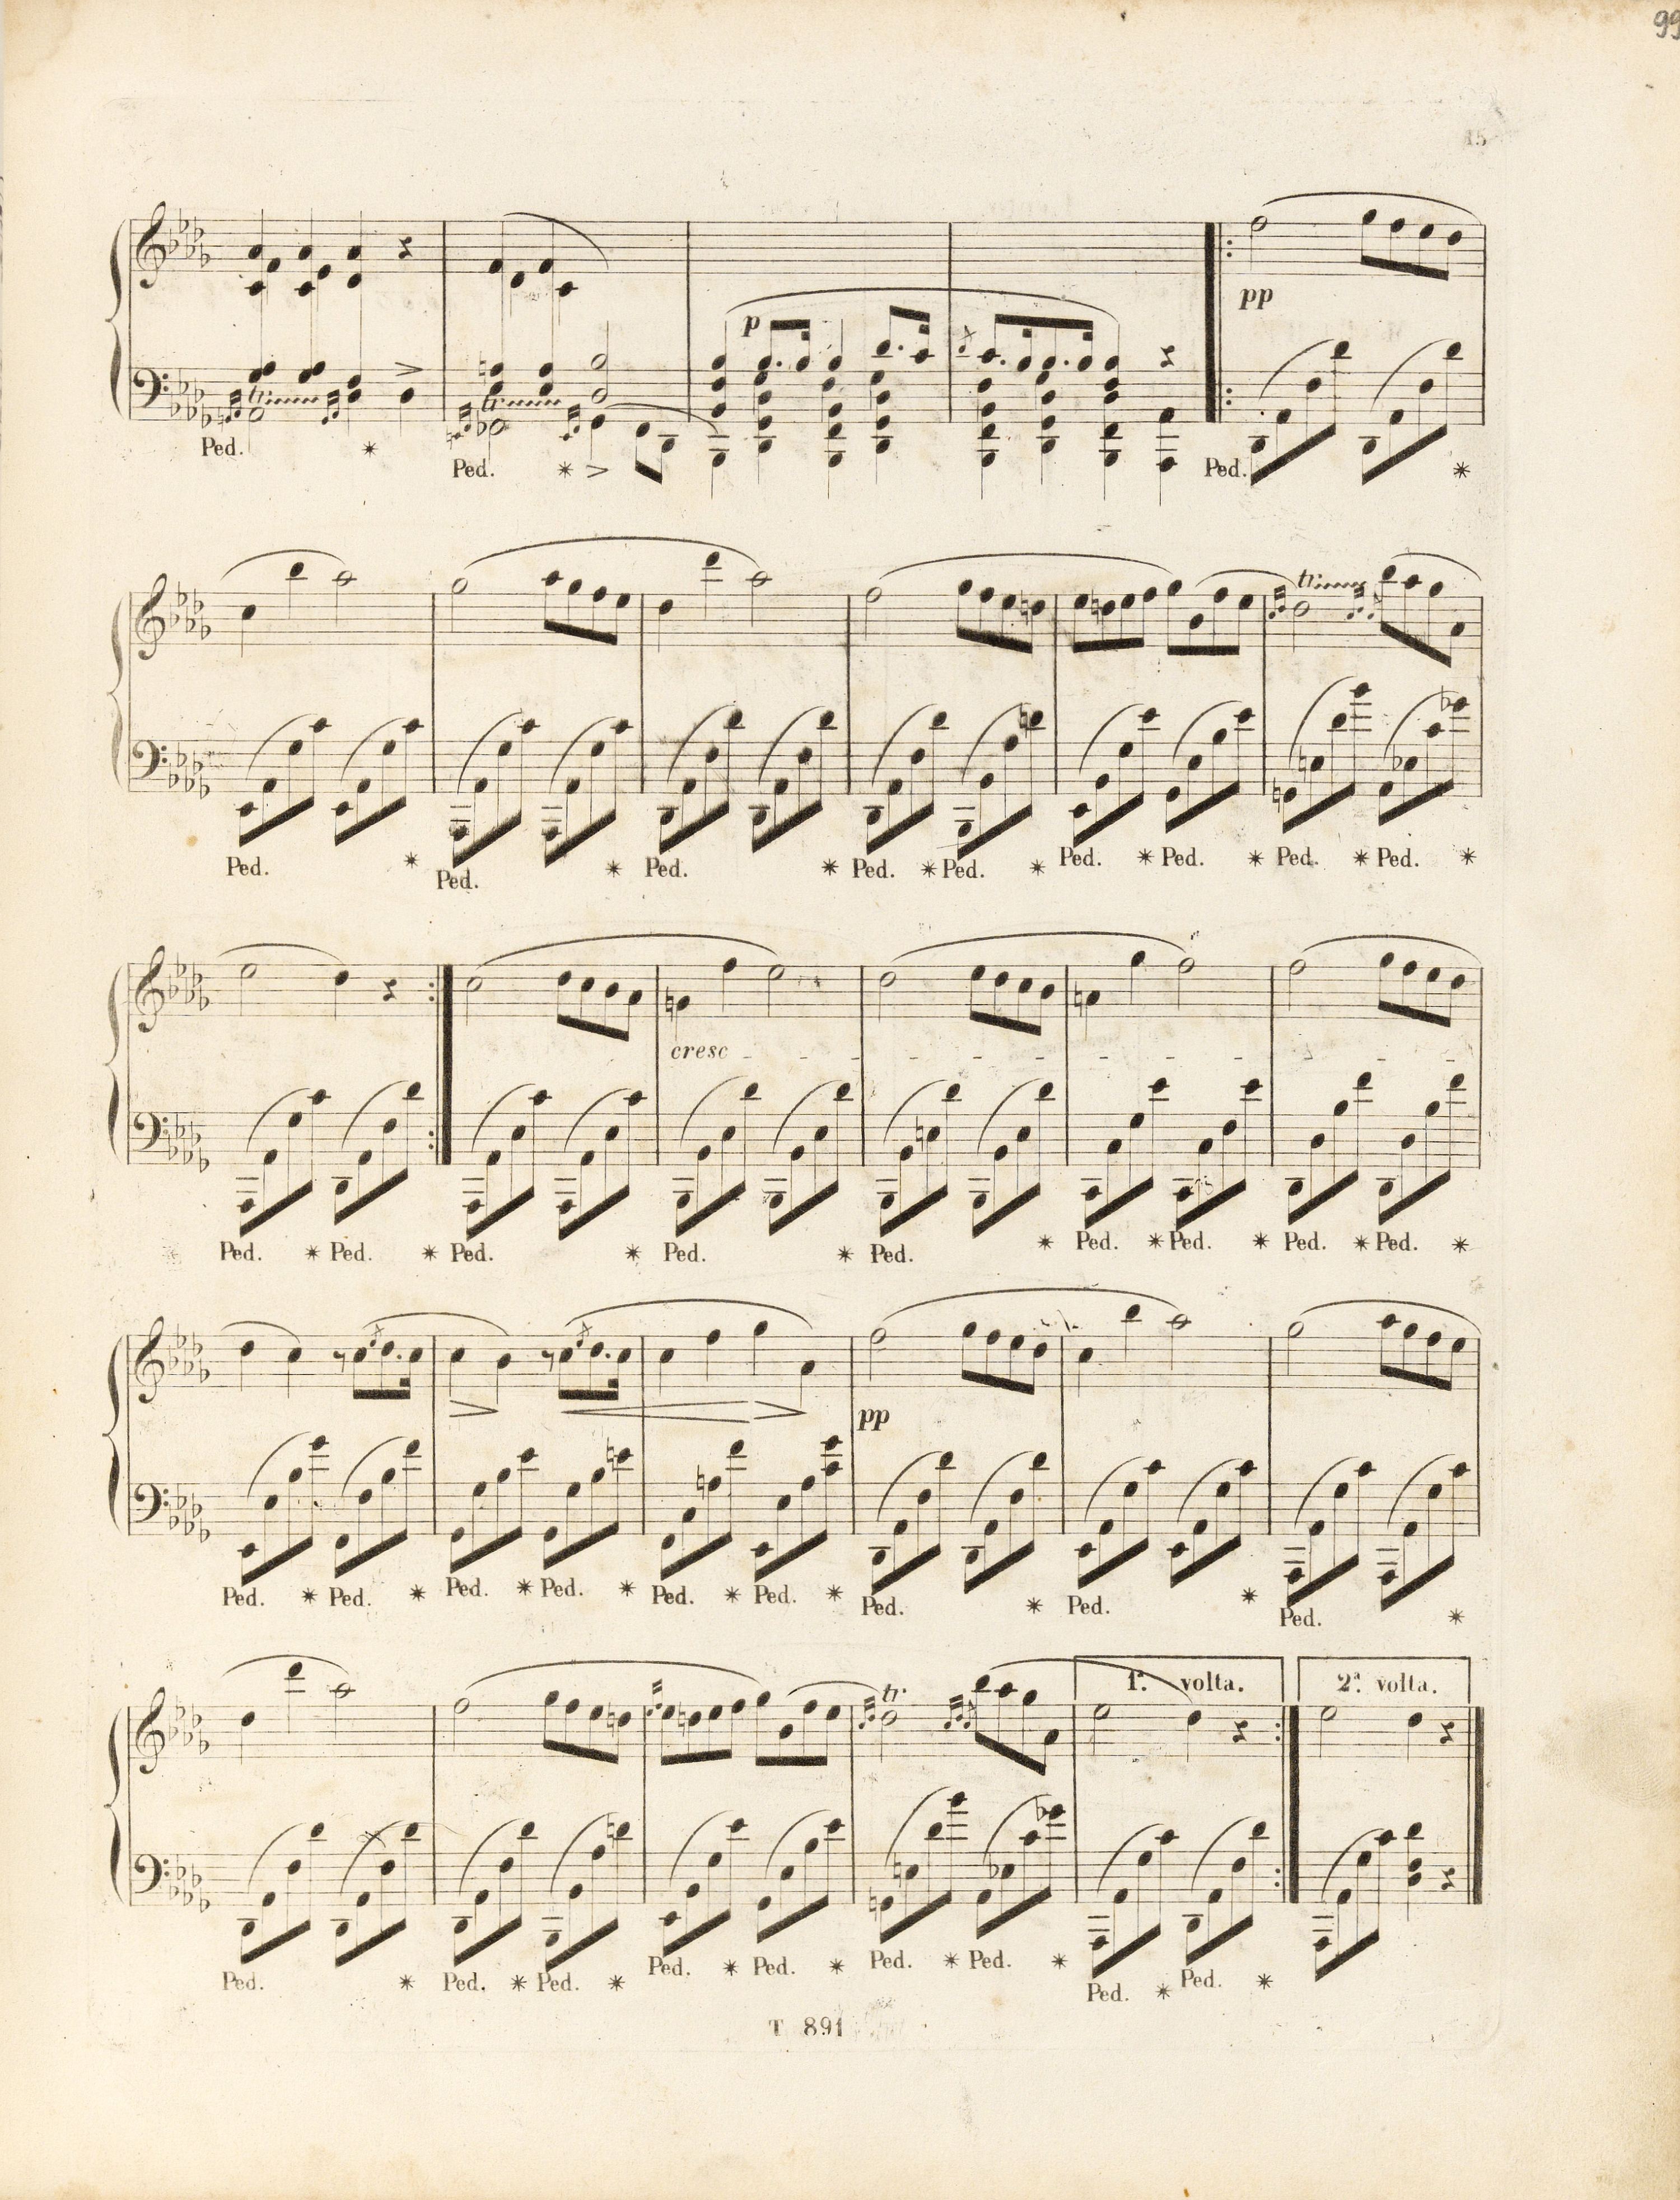 99
15
p
pp
tr
tr
Ped. *
Ped. * Ped. *
tr
Ped. * Ped. * Ped. * Ped. * Ped. * Ped. * Ped. * Ped. * Ped. *
cresc
Ped. * Ped. * Ped. * Ped. * Ped. * Ped. * Ped. * Ped. * Ped. *
pp
Ped. * Ped. * Ped. * Ped. * Ped. * Ped. * Ped. * Ped. * Ped. *
1ª. volta. 2ª. volta.
tr.
Ped. * Ped. * Ped. * Ped. * Ped. * Ped. * Ped. * Ped. * Ped. *
T 891